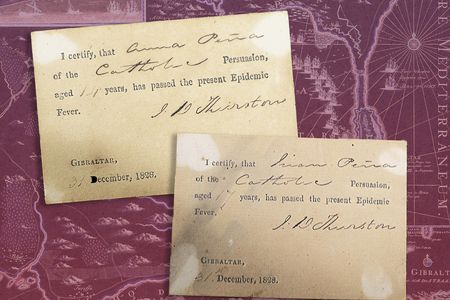 I certify, that Anna Peña
of the Catholic Persuasion,
aged 14 years, has passed the present Epidemic
Fever.
I D Thurston
GIBRALTAR,
31 December, 1828.
I certify, that Peña
of the Catholic Persuasion,
aged 17 years, has passed the present Epidemic
Fever.
I. D Thurston
GIBRALTAR,
31st December, 1828.
MEDITERRANEUM